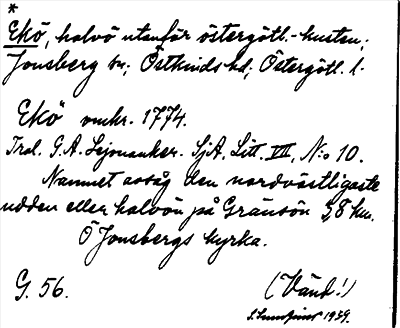 *
Ekö, halvö utanför östergötl.-kusten;
Jonsberg sn; Östkinds hd; Östergötl. l.
Ekö omkr. 1774.
Tral. G. A. Lejonanker. SjA, Litt. VII, N:o 10.
Namnet avsåg den nordvästligaste
udden eller halvön på Gränsön 3,8 km.
Ö Jonsbergs kyrka.
G. 56.
(Vänd!)
1939.